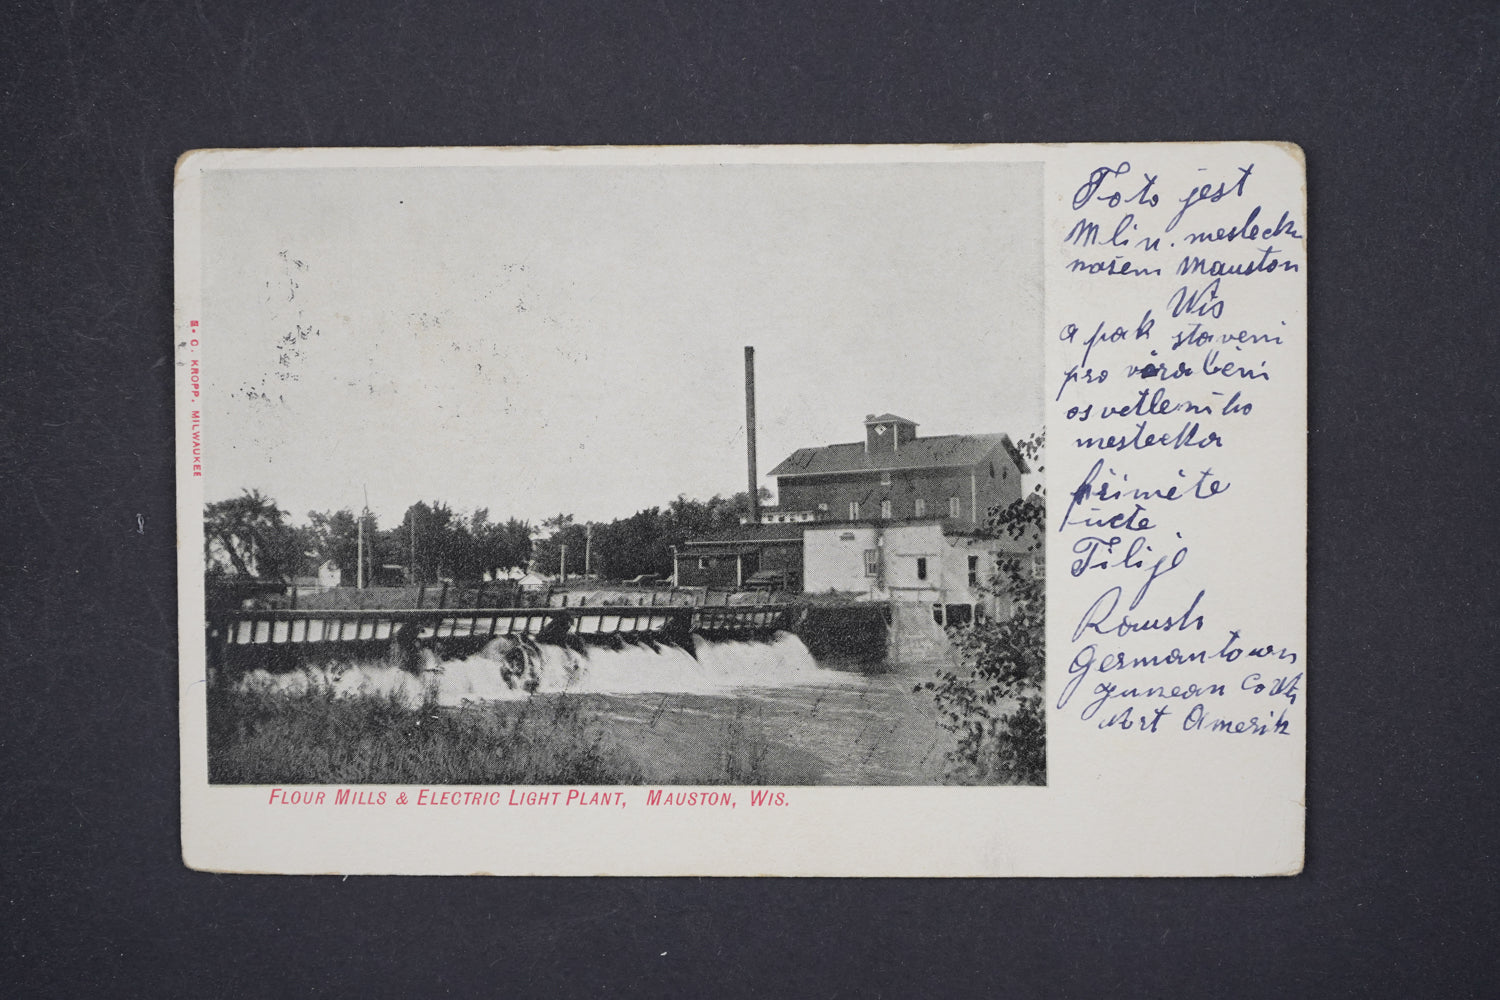 E. C. KROPP, MILWAUKEE
FLOUR MILLS & ELECTRIC LIGHT PLANT, MAUSTON, WIS.
Toto jest
Mlin. mestecku
našem Mauston
Wis
a pak staveni
pro
osvetleniho
mestecka
přiměte
ucte
Germantown
Juneau Co
Nort Amerik